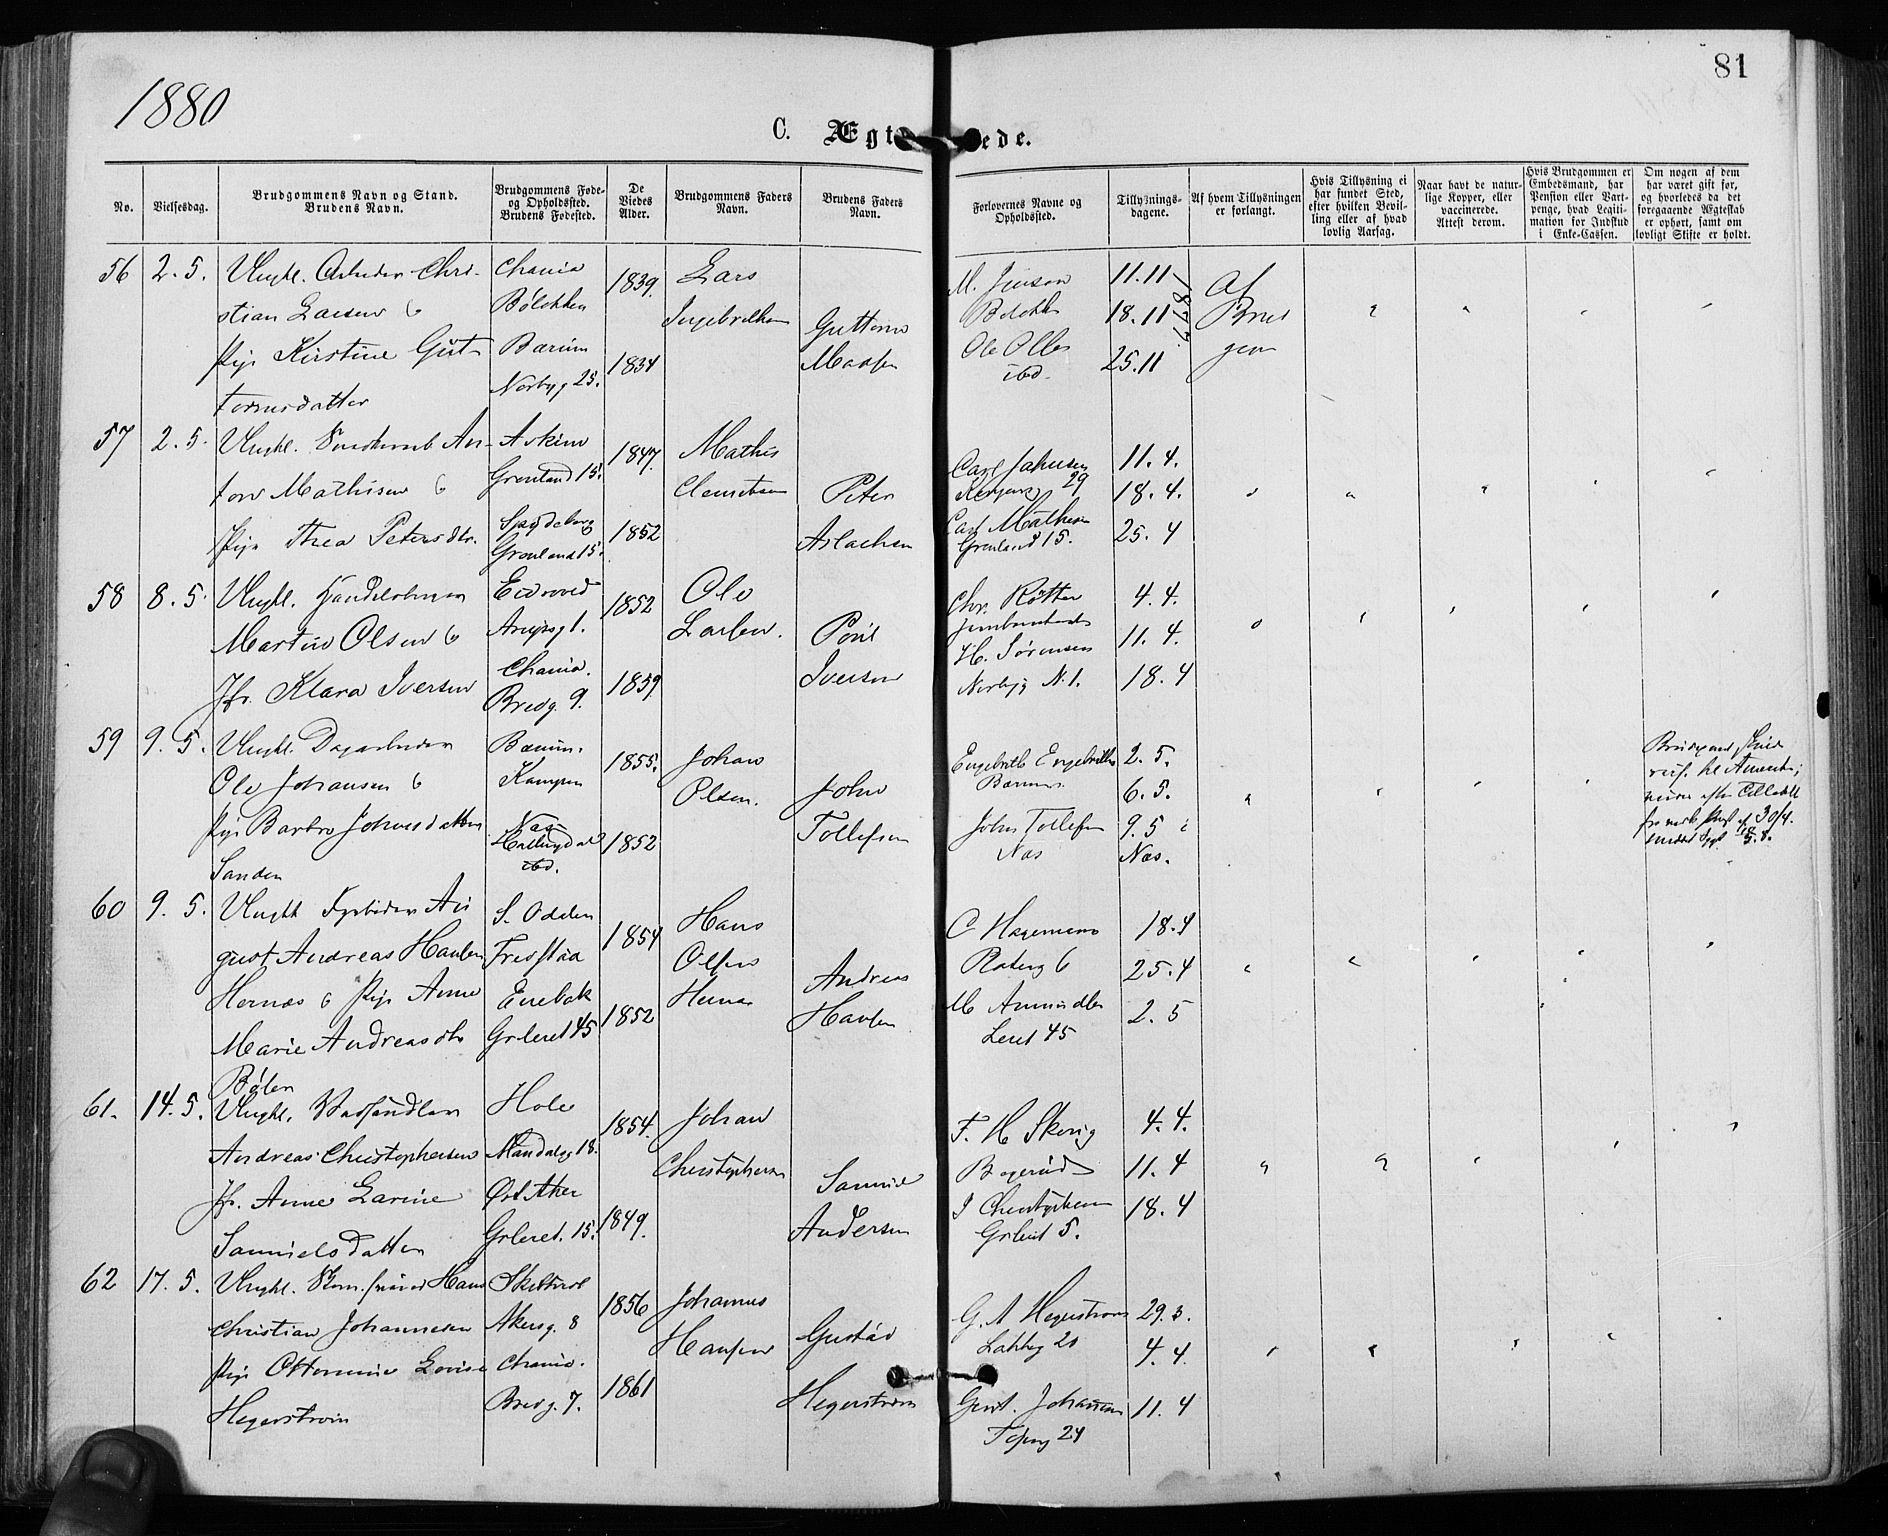 1880
81
C. Ægt ede.
No.
Vielsesdag.
Brudgommens Navn og Stand.
Brudens Navn.
Brudgommens Føde-
og Opholdssted.
Brudens Fødested.
De
Viedes
Alder.
Brudgommens Faders
Navn.
Brudens Faders
Navn.
Forlovernes Navne og
Opholdssted.
Tillysnings-
dagene.
Af hvem Tillysningen
er forlangt.
Hvis Tillysning ei
har fundet Sted,
efter hvilken Bevil-
ling eller af hvad
lovlig Aarsag.
Naar havt de natur-
lige Kopper, eller
vaccinerede.
Attest derom.
Hvis Brudgommen er
Embedsmand, har
Pension eller Vart-
penge, hvad Legiti-
mation for Indskud
i Enke-Cassen.
Om nogen af dem
har været gift før,
og hvorledes da det
foregaaende Ægteskab
er ophørt, samt om
lovligt Skifte er holdt.
56 2. 5.
Ungkl. Arbeider Chri-
stian Larsen 6
Pige Kirstine Gut-
tormsdatter
Chania
Bølokken
Bærum
Norbyg 25.
1839.
1834
Lars
Ingebretsen
Guttorm
M. Jensen
Ole Olsen
ibd.
11.11
18.11
25.11
Af
Brud
gom
57 2. 5.
Ungkl. An-
ton Mathisen 6
Pige Thea Petersdtr.
Askim
Grønland 15.
Spydeberg
Grønland 15.
1847.
1852
Mathis
Clemetsen
Peter
Aslaksen
Carl Johnsen
29
Carl Mathisen
Grønland 15.
11. 4.
18. 4.
25. 4
58 8. 5.
Ungkl. Handelsmand
Martin Olsen 6
Jfr. Klara Iversen
Eidsvold
Arupsg 1.
Chania.
Bredg. 9.
1852
1859
Ole
Larsen.
Poul
Iversen
Chr. Rotter
H. Sørensen
Norbyg N. 1.
4. 4.
11. 4.
18. 4
59 9. 5.
Ungkl. Dagarbeider
Ole Johansen 6
Pige Barbro Johnsdatter
Sanden
Bærum.
Kampen
Næs
Hallingdal
ibd.
1855.
1852
Johan
Olsen.
John
Tollefsen
Engebret Engebretsen
Bærum
John Tollefsen
Næs
2. 5.
6. 5.
9. 5
Næs.
60 9. 5.
Ungkl Au
gust Andreas Hansen
Hernæs 6 Pige Anne
Marie Andreasdtr
Bølen
S. Odalen
Enebak
Grleret 45
1854
1852
Hans
Olsen
Hernæs
Andreas
Hansen
C Hagemann
Raadhg 6
M Amundsen
Leret 45
18.4
25.4
2. 5
61. 14. 5.
Ungkl.
Andreas Christophersen
Jfr. Anne Larine
Samuelsdatter
Hole
Mandalsg 18.
Øst Aker
Grleret. 15.
1854.
1849.
Johan
Christophersen
Samuel
Andersen
F. H Skovig
Bogerud
J Christophersen
Grleret 5.
4. 4.
11. 4
18. 4
62 17. 5.
Ungkl. Hans
Christian Johannesen
Pige Ottomine Lovise
Hegerstrøm
Skedsmo
Akersg. 8
Chania.
Bredg. 7.
1856
1861
Johannes
Hansen
Gustav
Hegerstrøm
G. A Hegerstrøm
Lakkeg 20
Gust. Johannesen
24
29. 3.
4. 4.
11. 4